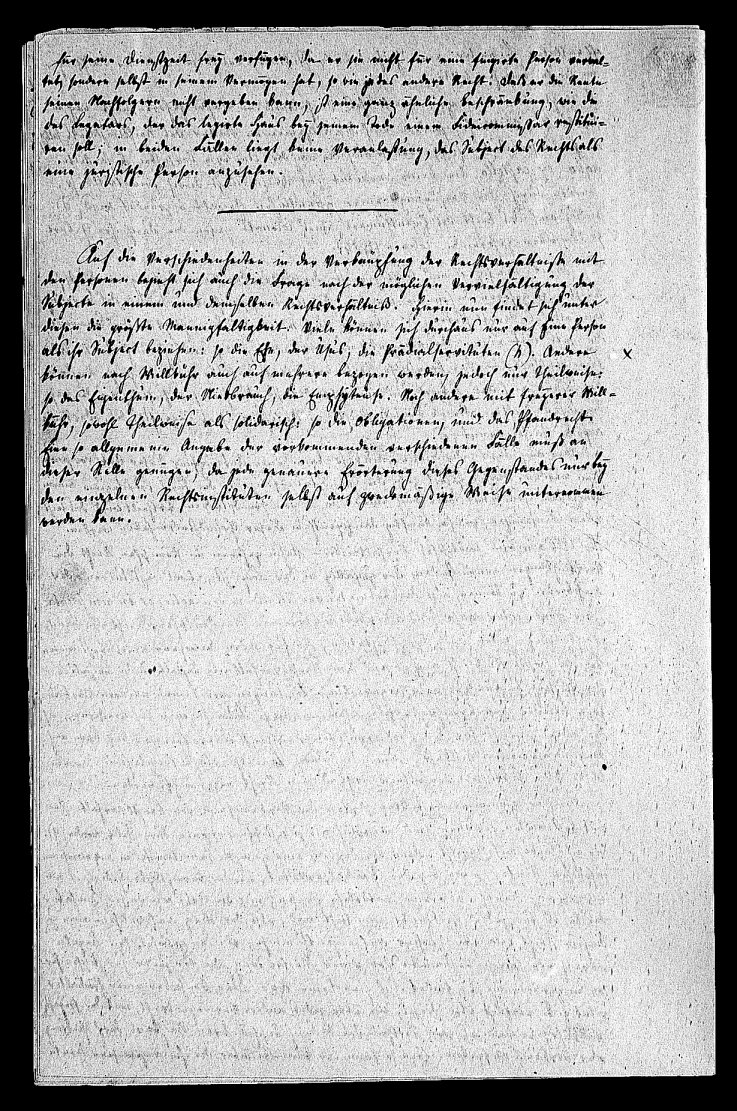 für seine Dienstzeit frey verfügen, da er sie nicht für eine fingirte Person verwal-
tet, sondern selbst in seinem Vermögen hat, so wie jedes andere Recht. Daß er die Rente
seinen Nachfolgern nicht vergeben kann, ist eine ganz ähnliche Beschränkung, wie die
des Legatars, der das legirte Haus bey seinem Tode einem Fideicommissar restitui-
ren soll; in beiden Fällen liegt keine Veranlassung, das Subject des Rechts als
eine juristische Person anzusehen.
Auf die Verschiedenheiten in der Verknüpfung der Rechtsverhältnisse mit
den Personen bezieht sich auch die Frage nach der möglichen Vervielfältigung der
Subjecte in einem und demselben Rechtsverhältniß. Hierin nun findet sich unter
diesen die größte Mannigfaltigkeit. Viele können sich durchaus nur auf Eine Person
als ihr Subject beziehen: so die Ehe, der Usus, die Prädialservituten (h). Andere x
können nach Willkühr auch auf mehrere bezogen werden, jedoch nur theilweise:
so das Eigenthum, der Niesbrauch, die Emphyteuse. Noch andere mit freyerer Will-
kühr, sowohl theilweise als solidarisch: so die Obligationen, und das Pfandrecht.
Eine so allgemeine Angabe der vorkommenden verschiedenen Fälle muß an
dieser Stelle genügen, da jede genauere Erörterung dieses Gegenstandes nur bey
den einzelnen Rechtsinstituten selbst auf zweckmäßige Weise unternommen
werden kann.